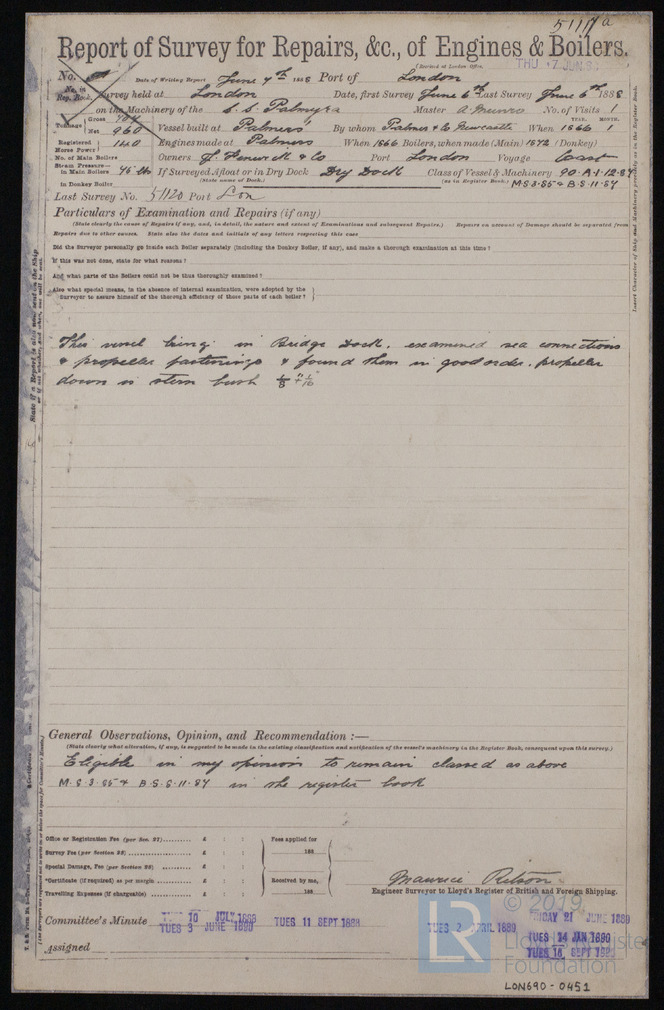 5111 a
Report of Survey for Repairs, &c., of Engines & Boilers.
(Received at London Office,
THU 7 JUN
No. Date of Writing Report June 7th 1888 Port of London
No. in Reg. Book. Survey held at London Date, first Survey June 6th Last Survey June 6th 1888
on the Machinery of the S.S. Palmyra Master A. Munro No. of Visits 1
Tonnage Gross 704 Net 960 Vessel built at Palmers By whom Palmer & Co Newcastle When 1866 YEAR. MONTH. 1
Registered Horse Power 140 Engines made at Palmers When 1866 Boilers, when made (Main) 1872 (Donkey)
No. of Main Boilers Owners J. Fenwick & Co Port London Voyage Coast
Steam Pressure— in Main Boilers 45 lbs If Surveyed Afloat or in Dry Dock Dry Dock Class of Vessel & Machinery 90.A.1.12.87
in Donkey Boiler (State name of Dock.) (as in Register Book.) M.S.3.85 & B.S.11.87
Last Survey No. 51120 Port Lon
Particulars of Examination and Repairs (if any)
(State clearly the cause of Repairs if any, and, in detail, the nature and extent of Examinations and subsequent Repairs.) Repairs on account of Damage should be separated from
Repairs due to other causes. State also the dates and initials of any letters respecting this case
Did the Surveyor personally go inside each Boiler separately (including the Donkey Boiler, if any), and make a thorough examination at this time?
If this was not done, state for what reasons?
And what parts of the Boilers could not be thus thoroughly examined?
Also what special means, in the absence of internal examination, were adopted by the
Surveyor to assure himself of the thorough efficiency of those parts of each boiler?
This vessel being in Bridge Dock, examined sea connections
& propeller fastenings & found them in good order. propeller
down in stern bush 1/8" + 1/16
General Observations, Opinion, and Recommendation :—
(State clearly what alteration, if any, is suggested to be made in the existing classification and notification of the vessel's machinery in the Register Book, consequent upon this survey.)
Eligible in my opinion to remain classed as above
M.S.3.85 & B.S.S.11.87 in the register book
Office or Registration Fee (per Sec. 27) £ : : Fees applied for
Survey Fee (per Section 28) £ : : 188
Special Damage, Fee (per Section 28) £ : :
*Certificate (if required) as per margin £ : : Received by me,
Travelling Expenses (if chargeable) £ : : 188
Maurice Ritson
Engineer Surveyor to Lloyd's Register of British and Foreign Shipping.
Committee's Minute 10 JULY 1888
TUES 3 JUNE 1890
TUES 11 SEPT 1888
TUES 2 APRIL 1889
FRIDAY 21 JUNE 1889
TUES 14 JAN 1890
TUES 16 SEPT
Assigned
© 2019
LR
Lloyd's Register
Foundation
LON690-0451